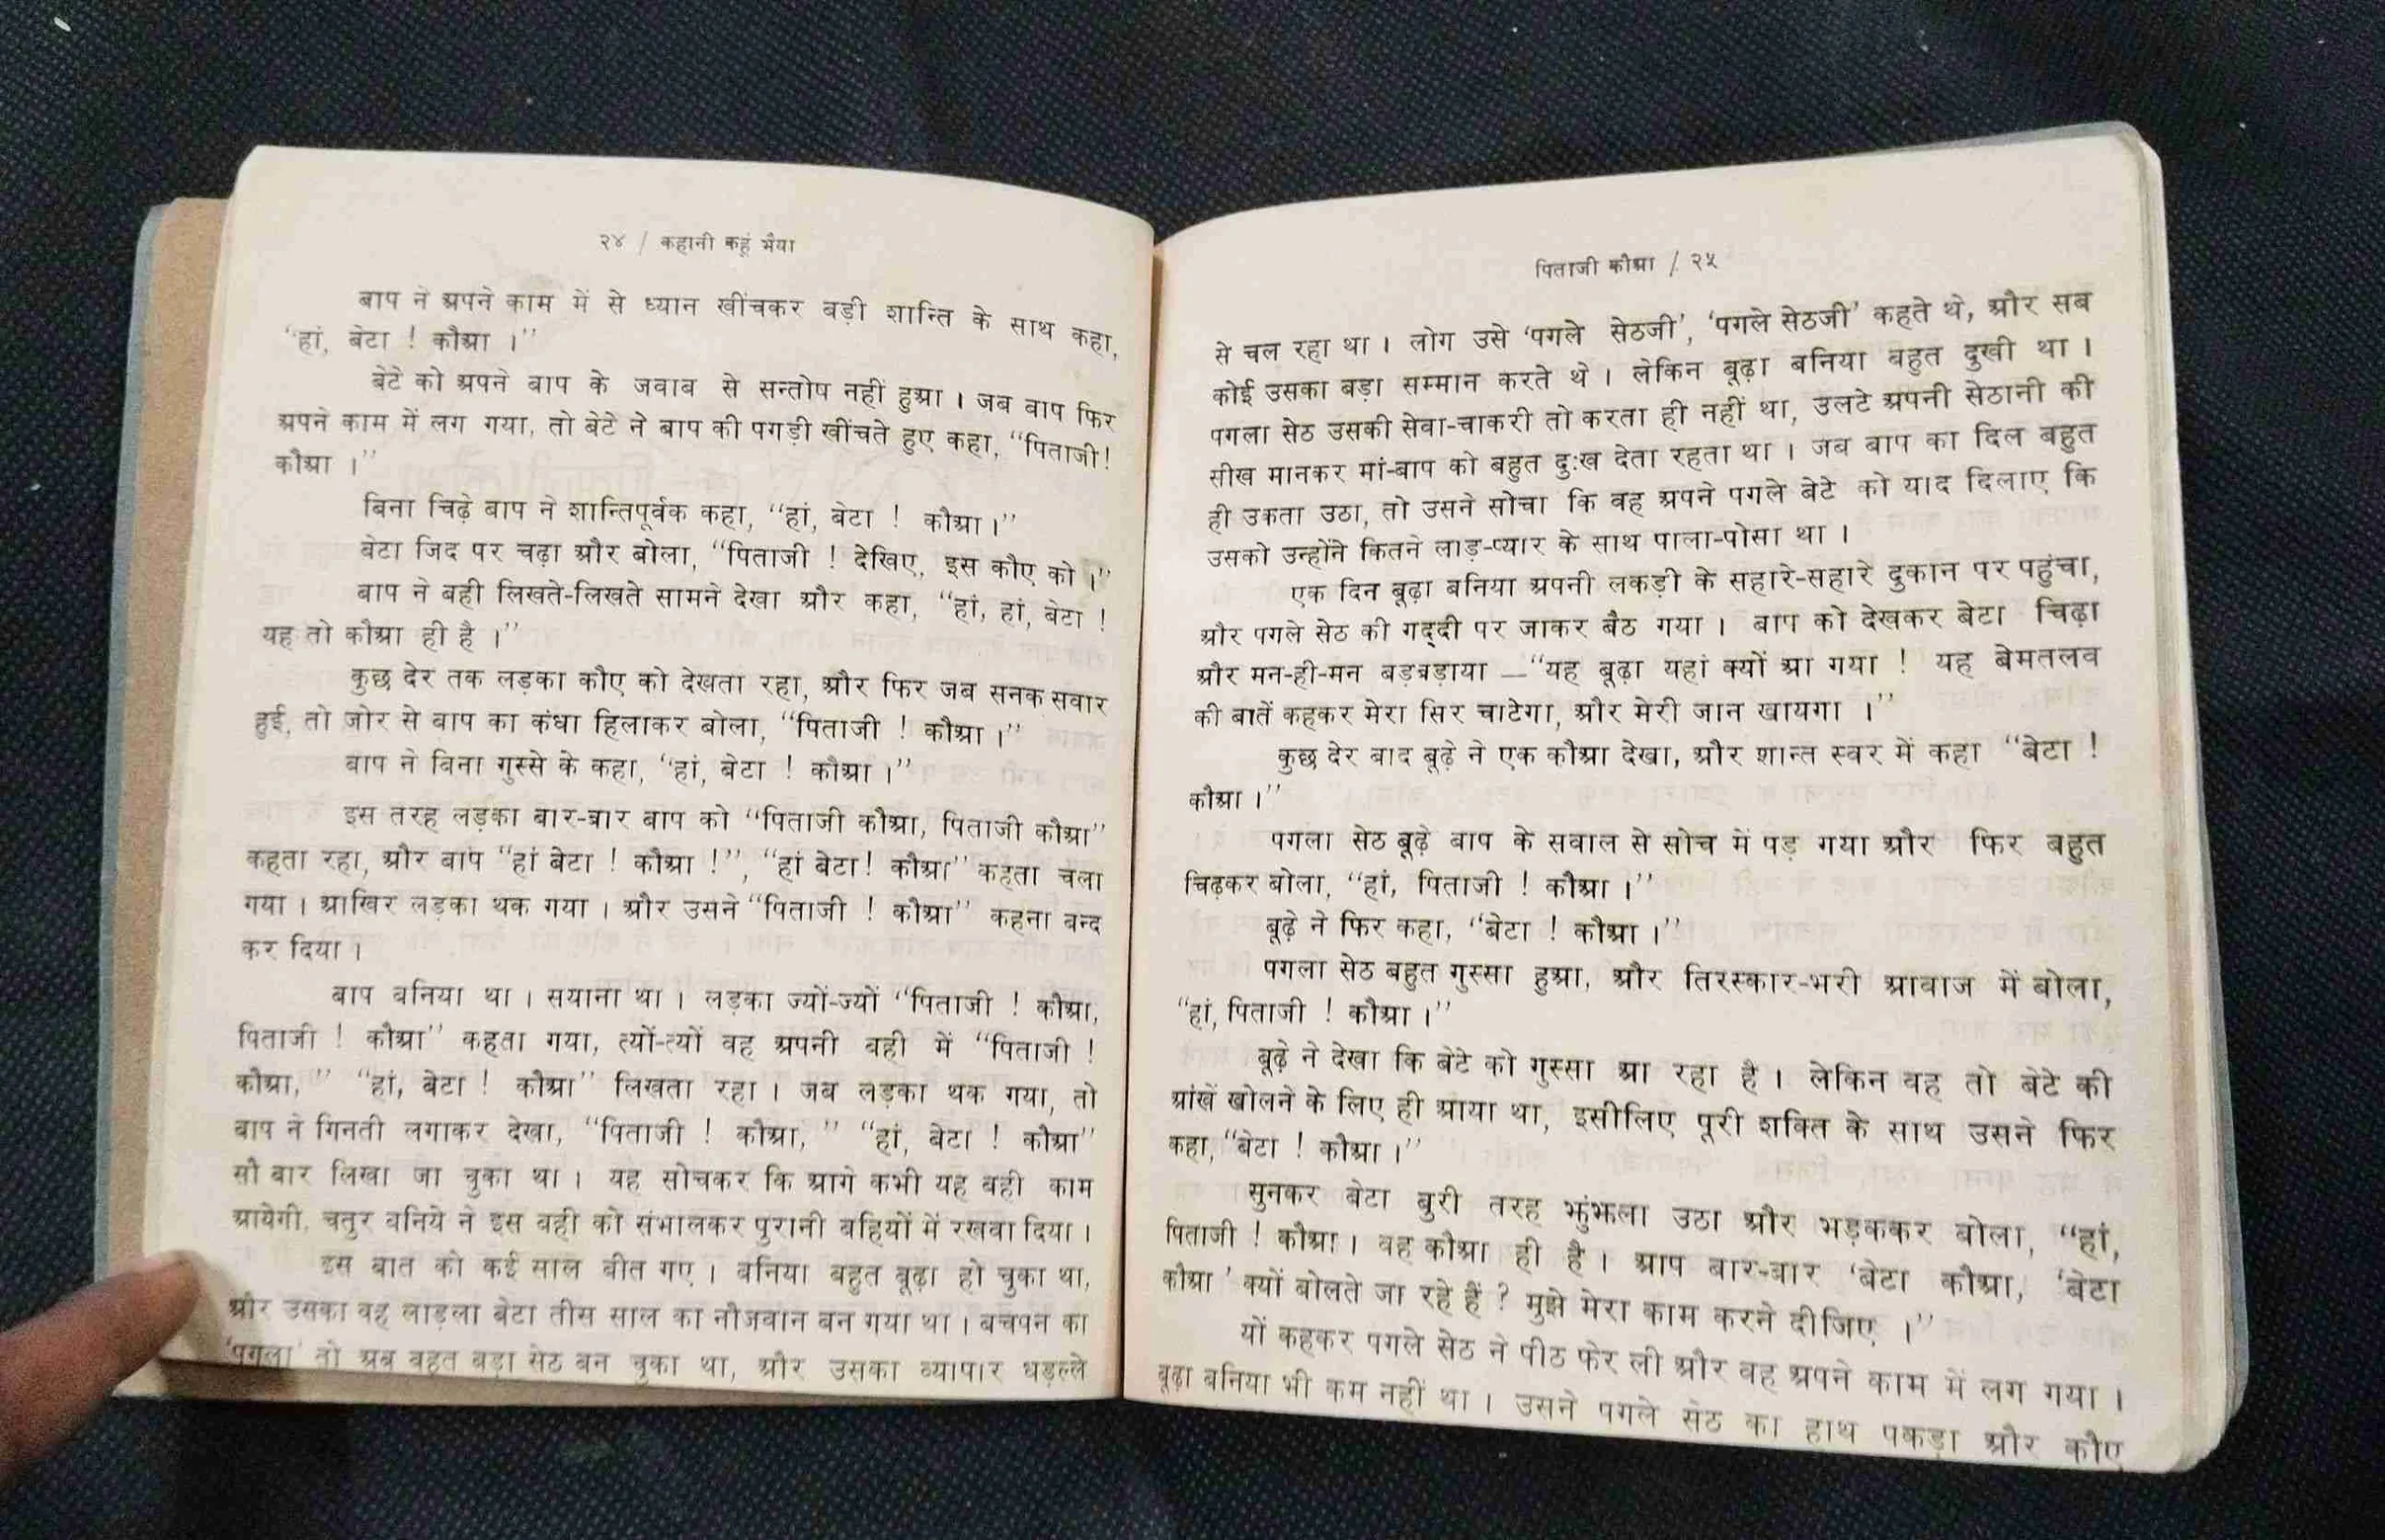 २४ / कहानी कहूं भैया
बाप ने अपने काम में से ध्यान खींचकर बड़ी शान्ति के साथ कहा,
“हां, बेटा ! कौआ ।”
बेटे को अपने बाप के जवाब से सन्तोष नहीं हुआ । जब बाप फिर
अपने काम में लग गया, तो बेटे ने बाप की पगड़ी खींचते हुए कहा, “पिताजी!
कौआ ।”
बिना चिढ़े बाप ने शान्तिपूर्वक कहा, “हां, बेटा ! कौआ ।”
बेटा जिद पर चढ़ा और बोला, “पिताजी ! देखिए, इस कौए को ।”
बाप ने बही लिखते-लिखते सामने देखा और कहा, “हां, हां, बेटा !
यह तो कौआ ही है ।”
कुछ देर तक लड़का कौए को देखता रहा, और फिर जब सनक सवार
हुई, तो जोर से बाप का कंधा हिलाकर बोला, “पिताजी ! कौआ ।”
बाप ने बिना गुस्से के कहा, “हां, बेटा ! कौआ ।”
इस तरह लड़का बार-बार बाप को “पिताजी कौआ, पिताजी कौआ”
कहता रहा, और बाप “हां बेटा ! कौआ !”, “हां बेटा! कौआ” कहता चला
गया । आखिर लड़का थक गया । और उसने “पिताजी ! कौआ” कहना बन्द
कर दिया ।
बाप बनिया था । सयाना था । लड़का ज्यों-ज्यों “पिताजी ! कौआ,
पिताजी ! कौआ” कहता गया, त्यों-त्यों वह अपनी बही में “पिताजी !
कौआ,” “हां, बेटा ! कौआ” लिखता रहा । जब लड़का थक गया, तो
बाप ने गिनती लगाकर देखा, “पिताजी ! कौआ,” “हां, बेटा ! कौआ”
सौ बार लिखा जा चुका था । यह सोचकर कि आगे कभी यह बही काम
आयेगी, चतुर बनिये ने इस बही को संभालकर पुरानी बहियों में रखवा दिया ।
इस बात को कई साल बीत गए । बनिया बहुत बूढ़ा हो चुका था,
और उसका वह लाड़ला बेटा तीस साल का नौजवान बन गया था । बचपन का
‘पगला’ तो अब बहुत बड़ा सेठ बन चुका था, और उसका व्यापार धड़ल्ले
पिताजी कौआ / २५
से चल रहा था । लोग उसे ‘पगले सेठजी’, ‘पगले सेठजी’ कहते थे, और सब
कोई उसका बड़ा सम्मान करते थे । लेकिन बूढ़ा बनिया बहुत दुखी था ।
पगला सेठ उसकी सेवा-चाकरी तो करता ही नहीं था, उलटे अपनी सेठानी की
सीख मानकर मां-बाप को बहुत दुःख देता रहता था । जब बाप का दिल बहुत
ही उकता उठा, तो उसने सोचा कि वह अपने पगले बेटे को याद दिलाए कि
उसको उन्होंने कितने लाड़-प्यार के साथ पाला-पोसा था ।
एक दिन बूढ़ा बनिया अपनी लकड़ी के सहारे-सहारे दुकान पर पहुंचा,
और पगले सेठ की गद्दी पर जाकर बैठ गया । बाप को देखकर बेटा चिढ़ा
और मन-ही-मन बड़बड़ाया — “यह बूढ़ा यहां क्यों आ गया ! यह बेमतलब
की बातें कहकर मेरा सिर चाटेगा, और मेरी जान खायगा ।”
कुछ देर बाद बूढ़े ने एक कौआ देखा, और शान्त स्वर में कहा “बेटा !
कौआ ।”
पगला सेठ बूढ़े बाप के सवाल से सोच में पड़ गया और फिर बहुत
चिढ़कर बोला, “हां, पिताजी ! कौआ ।”
बूढ़े ने फिर कहा, “बेटा ! कौआ ।”
पगला सेठ बहुत गुस्सा हुआ, और तिरस्कार-भरी आवाज में बोला,
“हां, पिताजी ! कौआ ।”
बूढ़े ने देखा कि बेटे को गुस्सा आ रहा है । लेकिन वह तो बेटे की
आंखें खोलने के लिए ही आया था, इसीलिए पूरी शक्ति के साथ उसने फिर
कहा, “बेटा ! कौआ ।”
सुनकर बेटा बुरी तरह झुंझला उठा और भड़ककर बोला, “हां,
पिताजी ! कौआ । वह कौआ ही है । आप बार-बार ‘बेटा कौआ, ‘बेटा
कौआ ’ क्यों बोलते जा रहे हैं ? मुझे मेरा काम करने दीजिए ।”
यों कहकर पगले सेठ ने पीठ फेर ली और वह अपने काम में लग गया ।
बूढ़ा बनिया भी कम नहीं था । उसने पगले सेठ का हाथ पकड़ा और कौए